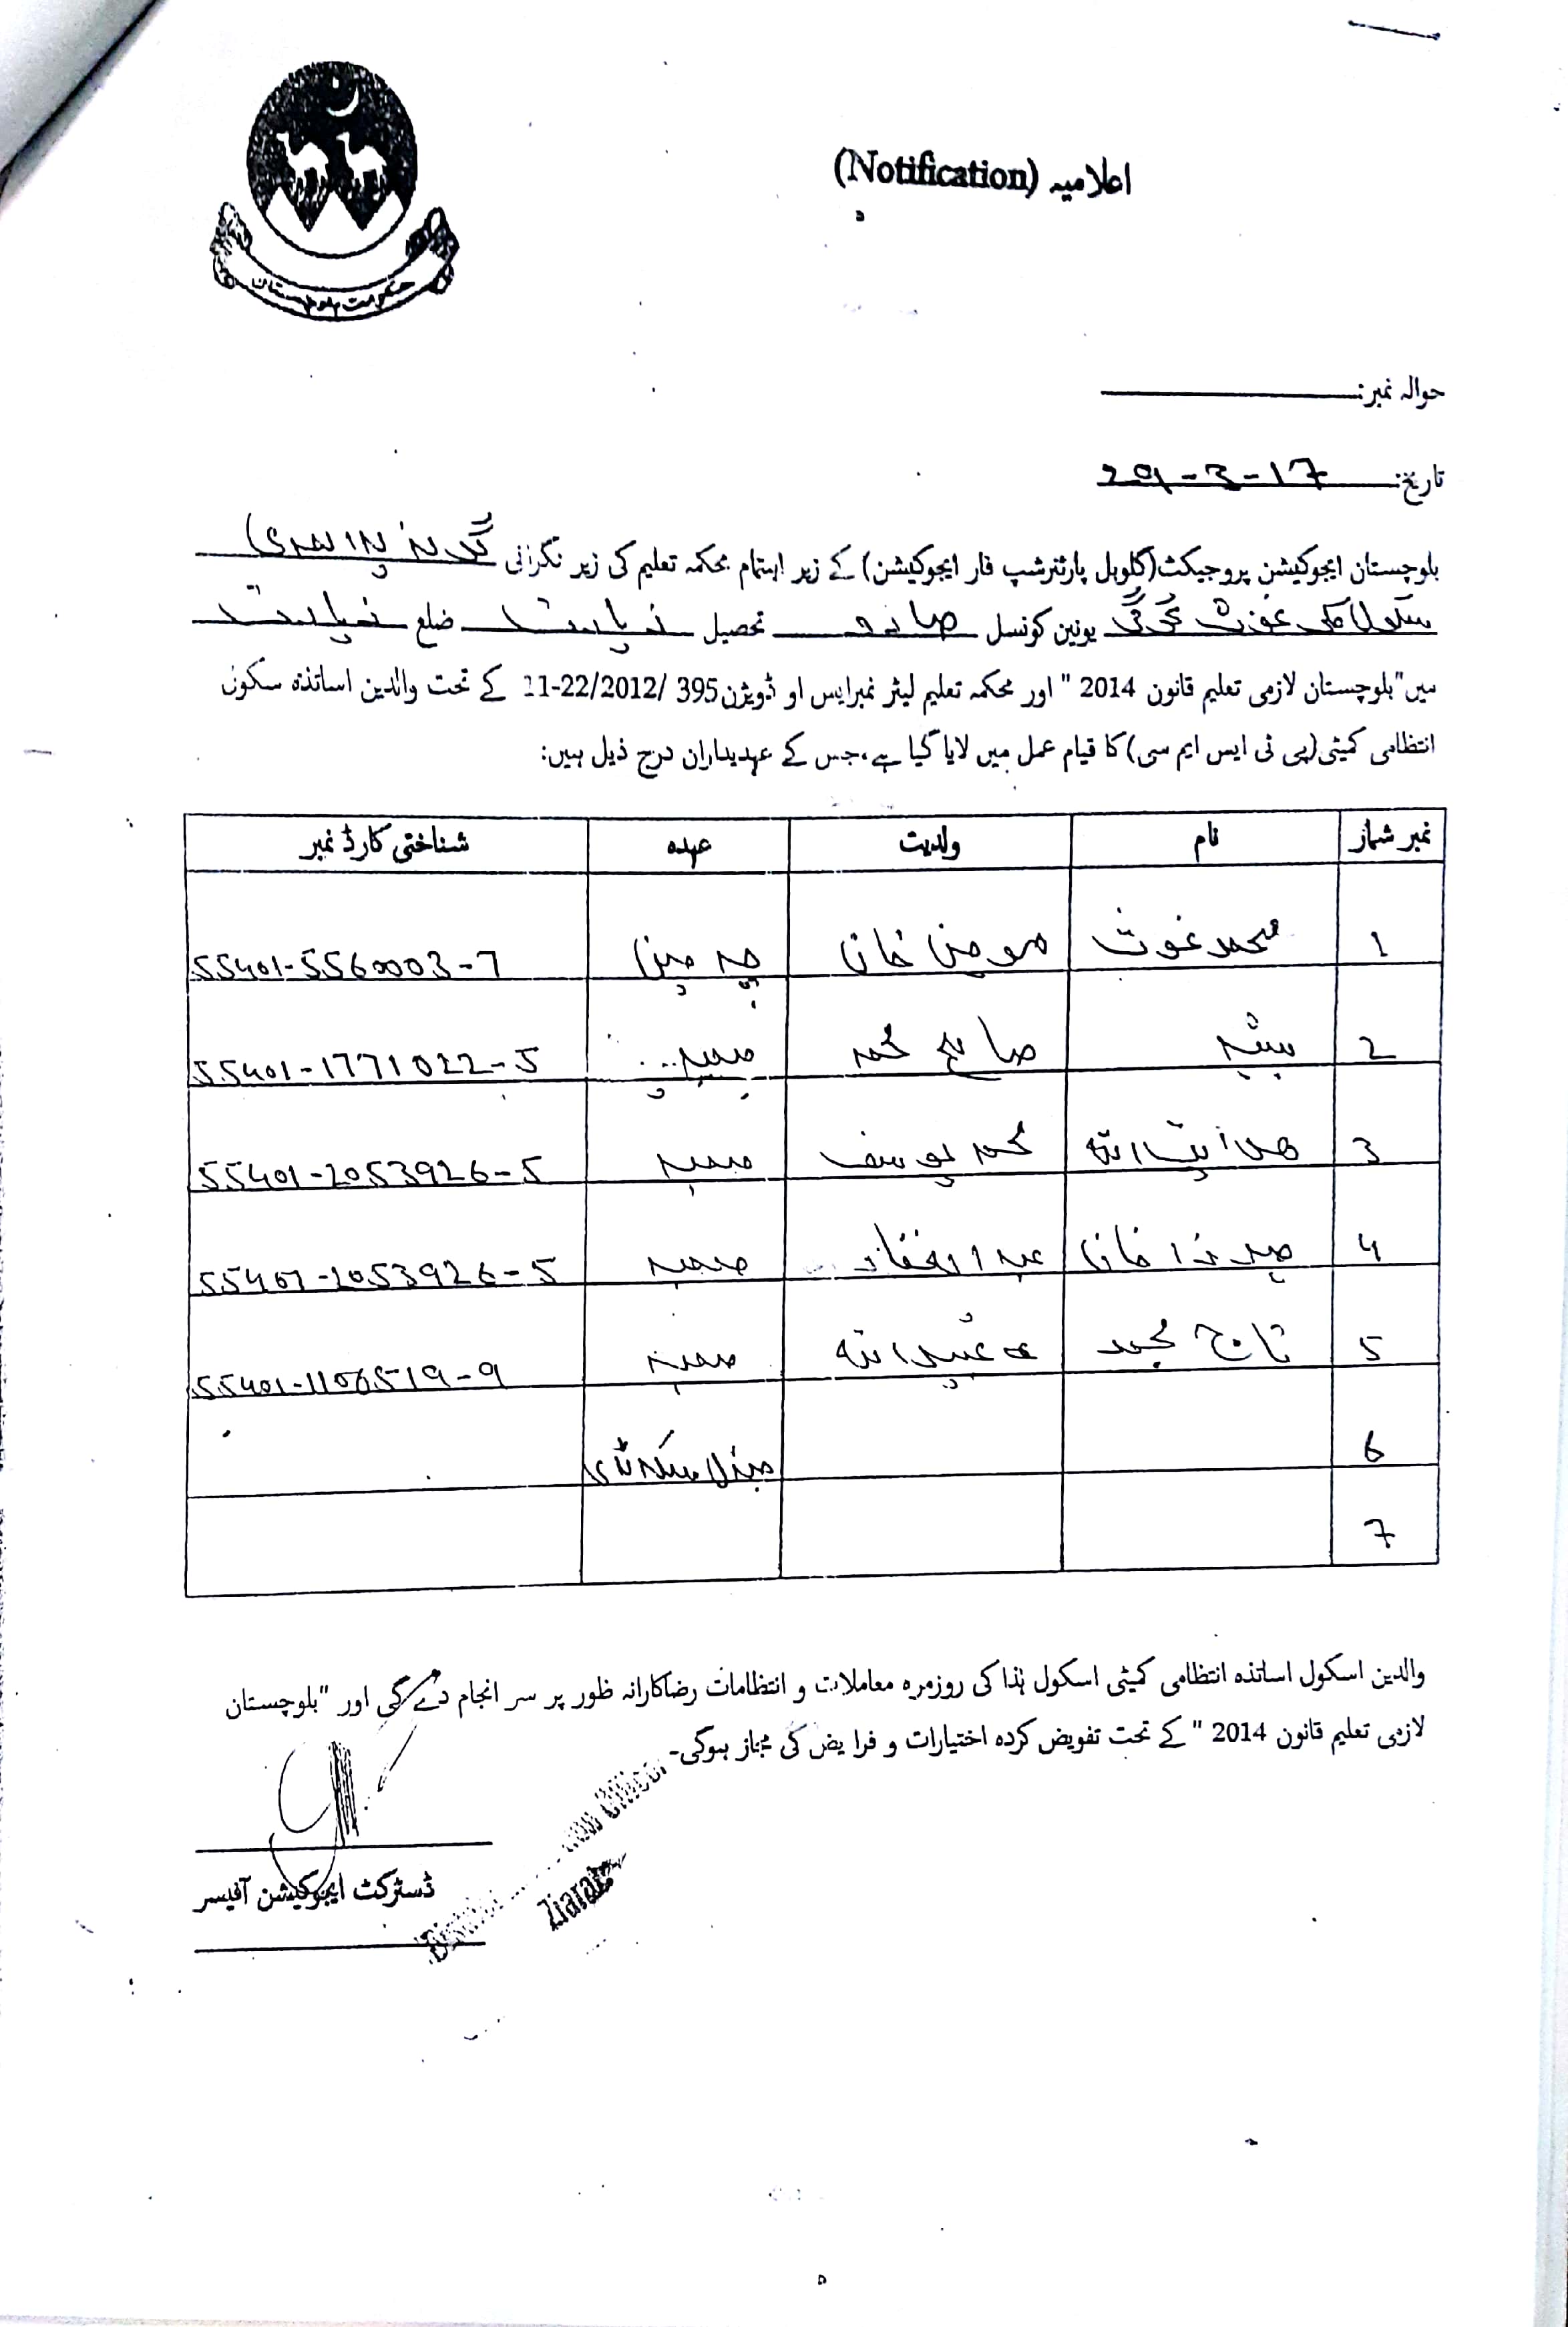 حکومت بلوچستان
اعلامیہ (Notification)
حوالہ نمبر:
تاریخ: 29-3-17
بلوچستان ایجوکیشن پروجیکٹ(گلوبل پارٹنرشپ فار ایجوکیشن) کے زیر اہتمام محکمہ تعلیم کی زیر نگرانی گرلز پرائمری
سکول کلی غوث یونین کونسل تحصیل زیارت ضلع زیارت
میں"بلوچستان لازمی تعلیم قانون 2014 " اور محکمہ تعلیم لیٹر نمبرایس او ڈویژن395 /11-22/2012 کے تحت والدین اساتذہ سکول
انتظامی کمیٹی(پی ٹی ایس ایم سی) کا قیام عمل میں لایا گیا ہے،جس کے عہدیداران درج ذیل ہیں:
نمبر شمار نام ولدیت عہدہ شناختی کارڈ نمبر
1 محمد غوث مومن خان چیرمین 55401-5560003-7
2 صالح محمد ممبر 55401-1771022-5
3 ھدایت اللہ محمد یوسف ممبر 55401-2053926-5
4 میرزا خان عبدالغفار ممبر 55401-2053926-5
5 تاج محمد عبیداللہ ممبر 55401-1106519-9
6 جنرل سیکرٹری
7
والدین اسکول اساتذہ انتظامی کمیٹی اسکول ہٰذا کی روزمرہ معاملات و انتظامات رضاکارانہ طور پر سر انجام دے گی اور "بلوچستان
لازمی تعلیم قانون 2014 " کے تحت تفویض کردہ اختیارات و فرایض کی مجاز ہوگی۔
ڈسٹرکٹ ایجوکیشن آفیسر
District Officer
Ziarat